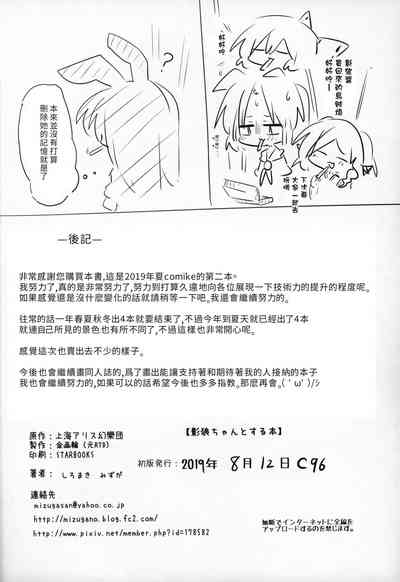 影狼醬
要回來的鳥財燒
好好吃ー
好好吃
下次要
大家一起去
吃喲
本來並沒有打算
刪除她的記憶就是了
?
—後記—
非常感謝您購買本書,這是2019年夏comike的第二本。
我努力了,真的是非常努力了,努力到打算久遠地向各位展現一下技術力的提升的程度呢。
如果感覺還是沒什麼變化的話就請稍等一下吧。我還會繼續努力的。
往常的話一年春夏秋冬出4本就要結束了,不過今年到夏天就已經出了4本
就連自己所見的景色也有所不同了,不過這樣也是非常開心呢。
感覺這次也賣出去不少的樣子。
今後也會繼續畫同人誌的,爲了畫出能讓支持著和期待著我的人接納的本子
我也會繼續努力的,如果可以的話希望今後也多多指教。那麽再會。( ' ω' )/ｼ
原作:上海アリス幻樂団
製作:金画輪(元RTD)
印刷:STARBOOKS
著者: しろまき みずが
【影狼ちゃんとする本】
初版発行: 2019年 8月12日 C96
連絡先
mizugasan@yahoo.co.jp
http://mizugano.blog.fc2.com/
http://www.pixiv.net/member.php?id=178582
無断でインターネットに全編を
アップロードするのを禁じます。